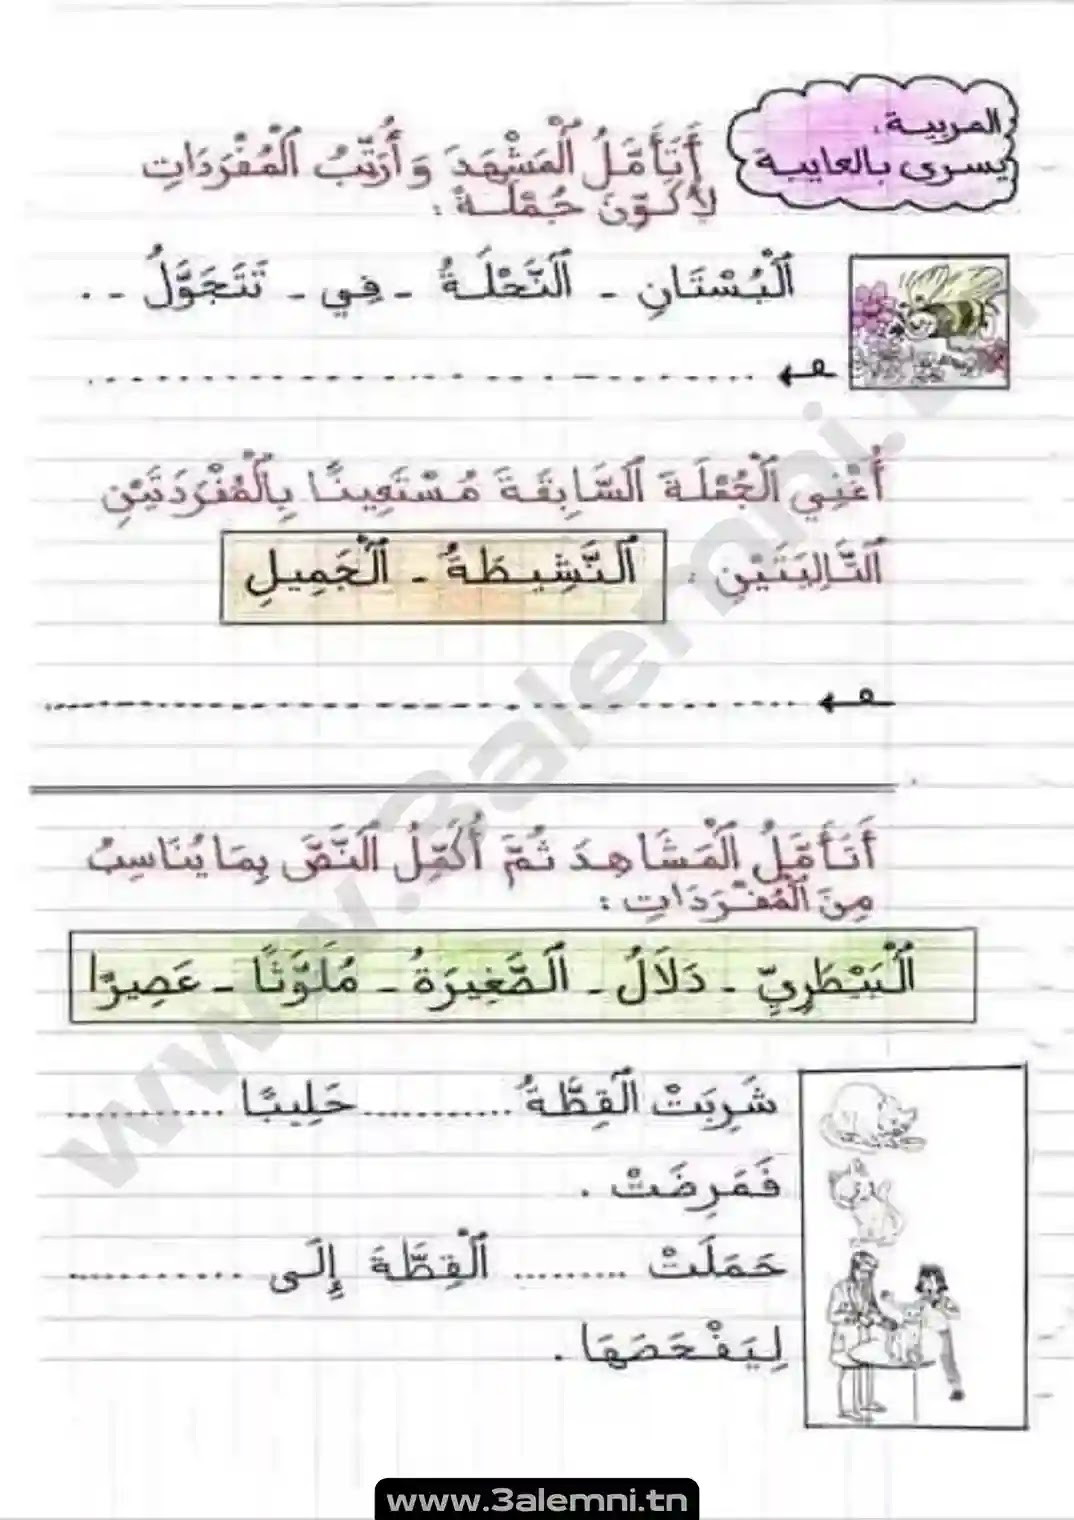 المربية:
يسرى بالعايبة
أَتَأَمَّلُ الْمَشْهَدَ وَ أُرَتِّبُ الْمُفْرَدَاتِ
لِأُكَوِّنَ جُمْلَةً :
الْبُسْتَانِ - النَّحْلَةُ - فِي - تَتَجَوَّلُ - .
أُغْنِي الْجُمْلَةَ السَّابِقَةَ مُسْتَعِينًا بِالْمُفْرَدَتَيْنِ
التَّالِيَتَيْنِ :
النَّشِيطَةُ - الْجَمِيلِ
أَتَأَمَّلُ الْمَشَاهِدَ ثُمَّ أُكَمِّلُ النَّصَّ بِمَا يُنَاسِبُ
مِنَ الْمُفْرَدَاتِ :
الْبَيْطَرِيِّ - دَلَالُ - الصَّغِيرَةُ - مُلَوَّثًا - عَصِيرًا
شَرِبَتْ الْقِطَّةُ ........... حَلِيبًا ...........
فَمَرِضَتْ .
حَمَلَتْ ......... الْقِطَّةَ إِلَى ............
لِيَفْحَصَهَا .
www.3alemni.tn
www.3alemni.tn